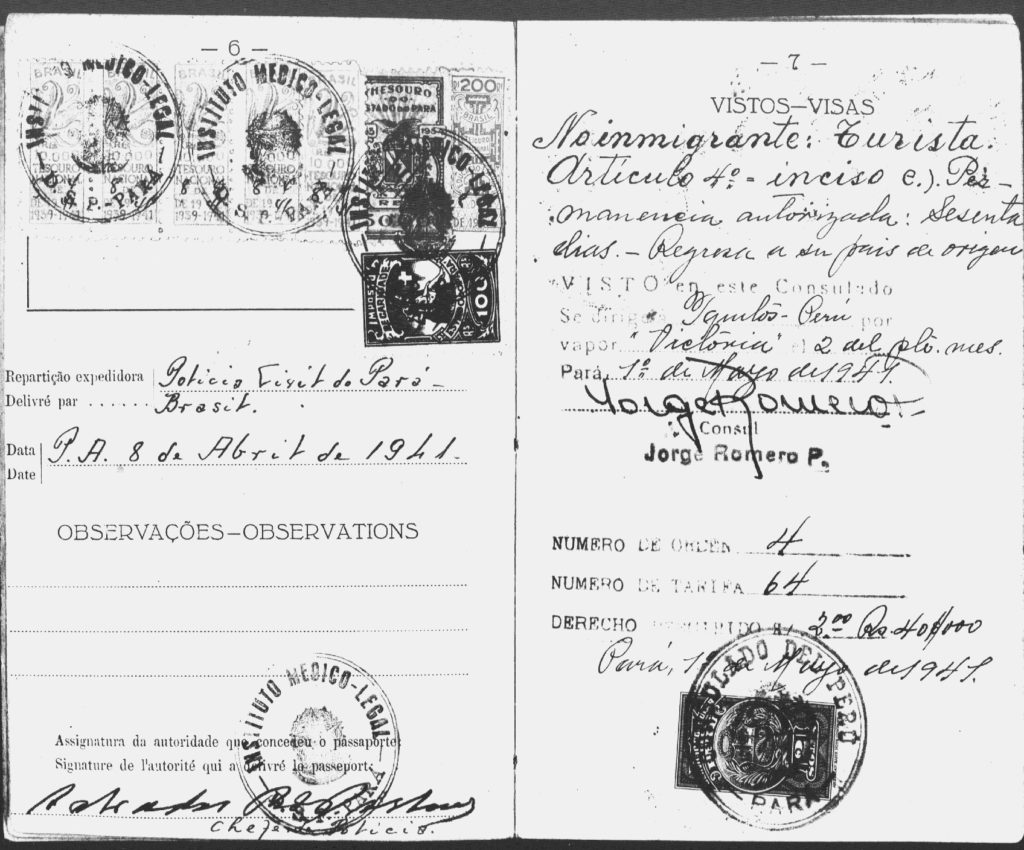 — 6 —
INSTITUTO MEDICO-LEGAL
D. S. P.-PARÁ
INSTITUTO MEDICO-LEGAL
D. S. P.-PARÁ
BRASIL
10.000
TESOURO NACIONAL
1939-1941
THESOURO
DO
ESTADO DO PARÁ
200
BRASIL
INSTITUTO MEDICO-LEGAL
100
Repartição expedidora Policia Civil do Pará-
Delivré par ...... Brasil.
Data P.A. 8 de Abril de 1941.
Date
OBSERVAÇÕES—OBSERVATIONS
INSTITUTO MEDICO-LEGAL
Assignatura da autoridade que concedeu o passaporte:
Signature de l'autorité qui a délivré le passeport:
Chefe de Policia.
— 7 —
VISTOS—VISAS
No inmigrante: Turista.
Artículo 4º - inciso c.) Per-
manencia autorizada: Sesenta
dias. - Regresa a su pais de origen
VISTO en este Consulado
Se dirige a Iquitos- Perú por
vapor "Victória" el 2 del pte. mes.
Pará, 1º de Mayo de 1941.
Jorge Romero P.
Consul
Jorge Romero P.
NUMERO DE ORDEN 4
NUMERO DE TARIFA 64
DERECHO PERCIBIDO S/ 2.00 Rs 40$000
Pará, 1º de Mayo de 1941.
CONSULADO DEL PERÚ
PARÁ